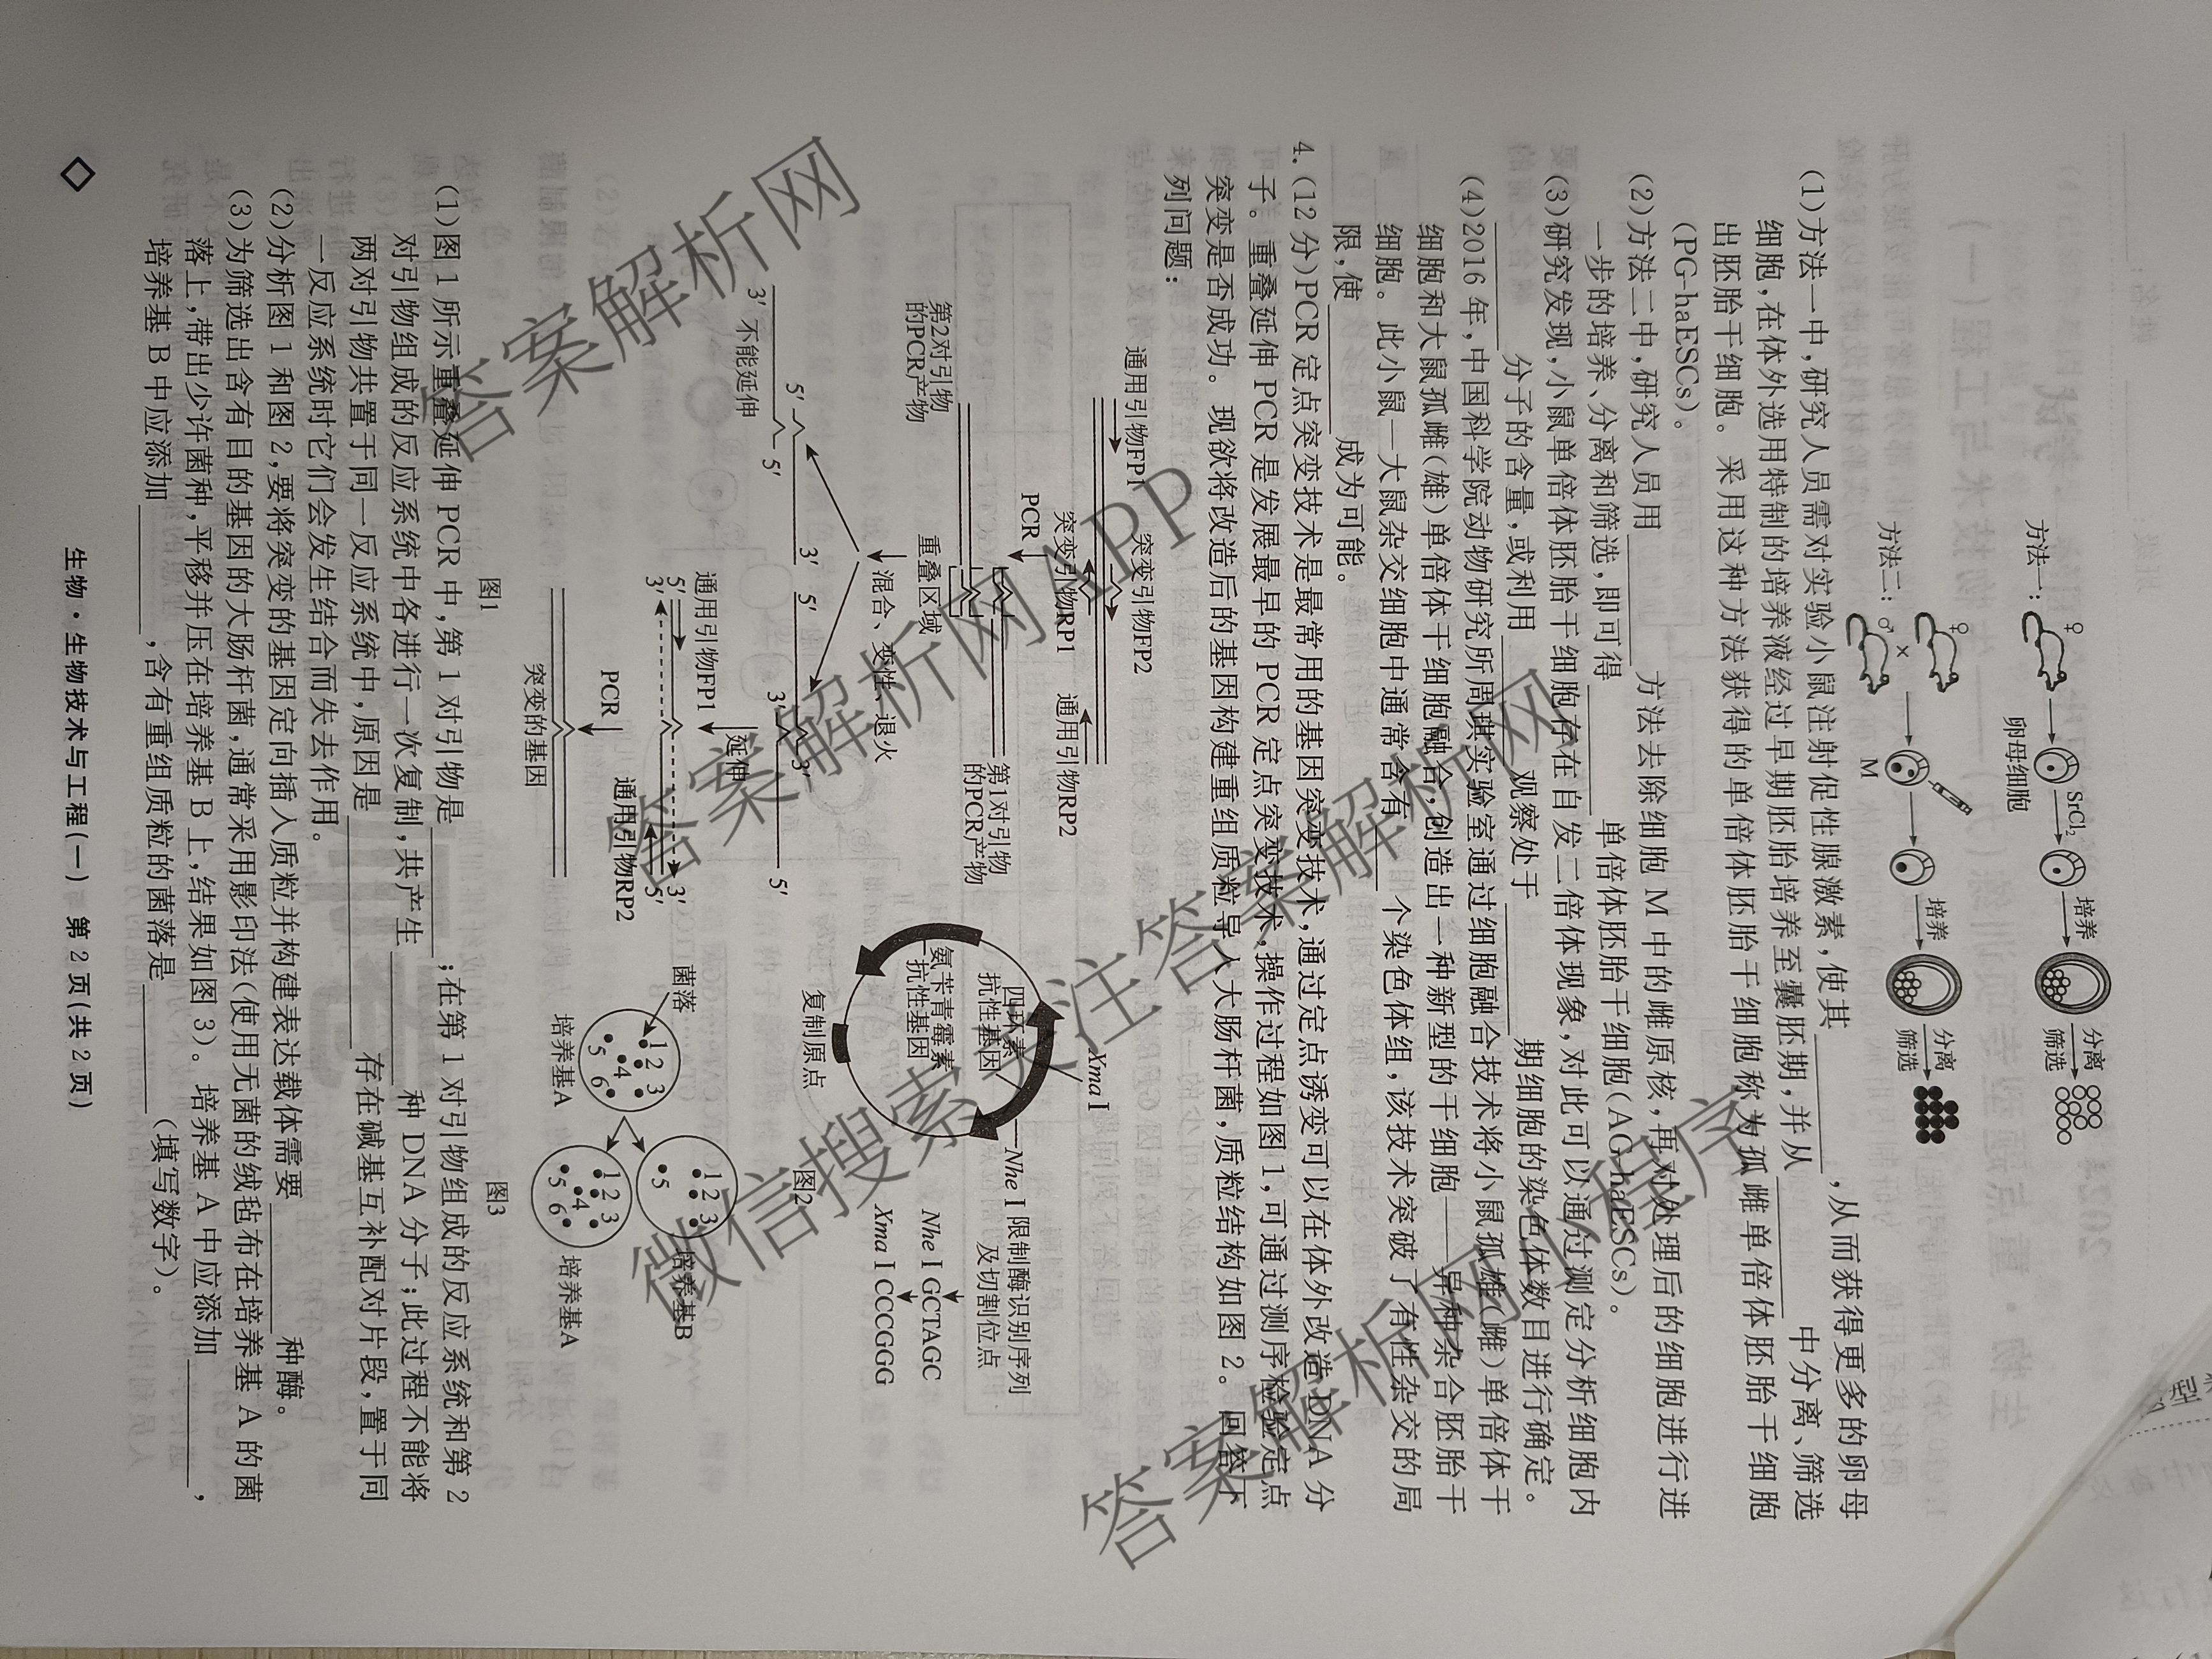 方法一：
♀
卵母细胞
SrCl₂
培养
分离
筛选
方法二：
♀
×
♂
M
培养
分离
筛选
(1)方法一中,研究人员需对实验小鼠注射促性腺激素,使其________,从而获得更多的卵母
细胞,在体外选用特制的培养液经过早期胚胎培养至囊胚期,并从________中分离、筛选
出胚胎干细胞。采用这种方法获得的单倍体胚胎干细胞称为孤雌单倍体胚胎干细胞
(PG-haESCs)。
(2)方法二中,研究人员用________方法去除细胞 M 中的雌原核,再对处理后的细胞进行进
一步的培养、分离和筛选,即可得________单倍体胚胎干细胞(AG-haESCs)。
(3)研究发现,小鼠单倍体胚胎干细胞存在自发二倍体现象,对此可以通过测定分析细胞内
________分子的含量,或利用________观察处于________期细胞的染色体数目进行确定。
(4)2016 年,中国科学院动物研究所周琪实验室通过细胞融合技术将小鼠孤雄(雌)单倍体干
细胞和大鼠孤雌(雄)单倍体干细胞融合,创造出一种新型的干细胞——异种杂合胚胎干
细胞。此小鼠—大鼠杂交细胞中通常含有________个染色体组,该技术突破了有性杂交的局
限,使________成为可能。
4. (12 分)PCR 定点突变技术是最常用的基因突变技术,通过定点诱变可以在体外改造 DNA 分
子。重叠延伸 PCR 是发展最早的 PCR 定点突变技术,操作过程如图 1,可通过测序检验定点
突变是否成功。现欲将改造后的基因构建重组质粒导入大肠杆菌,质粒结构如图 2。回答下
列问题：
通用引物FP1
突变引物FP2
突变引物RP1
通用引物RP2
PCR
第2对引物
的PCR产物
第1对引物
的PCR产物
重叠区域
混合、变性、退火
5′
3′
5′
3′
3′
不能延伸
5′
3′
5′
延伸
通用引物FP1
5′
3′
3′
5′
通用引物RP2
PCR
突变的基因
图1
Xma I
Nhe I
四环素
抗性基因
氨苄青霉素
抗性基因
复制原点
限制酶识别序列
及切割位点
Nhe I GCTAGC
Xma I CCCGGG
图2
菌落
1 2 3
4
5 6
培养基A
1 2 3
5
培养基B
1 2 3
4
5 6
培养基A
图3
(1)图 1 所示重叠延伸 PCR 中,第 1 对引物是________；在第 1 对引物组成的反应系统和第 2
对引物组成的反应系统中各进行一次复制,共产生________种 DNA 分子；此过程不能将
两对引物共置于同一反应系统中,原因是________________存在碱基互补配对片段,置于同
一反应系统时它们会发生结合而失去作用。
(2)分析图 1 和图 2,要将突变的基因定向插入质粒并构建表达载体需要________种酶。
(3)为筛选出含有目的基因的大肠杆菌,通常采用影印法(使用无菌的绒毡布在培养基 A 的菌
落上,带出少许菌种,平移并压在培养基 B 上,结果如图 3)。培养基 A 中应添加________,
培养基 B 中应添加________,含有重组质粒的菌落是________(填写数字)。
生物·生物技术与工程(一) 第 2 页(共 2 页)
答案解析网
答案解析网APP
答案解析网
微信搜索关注答案解析网
答案解析网小程序